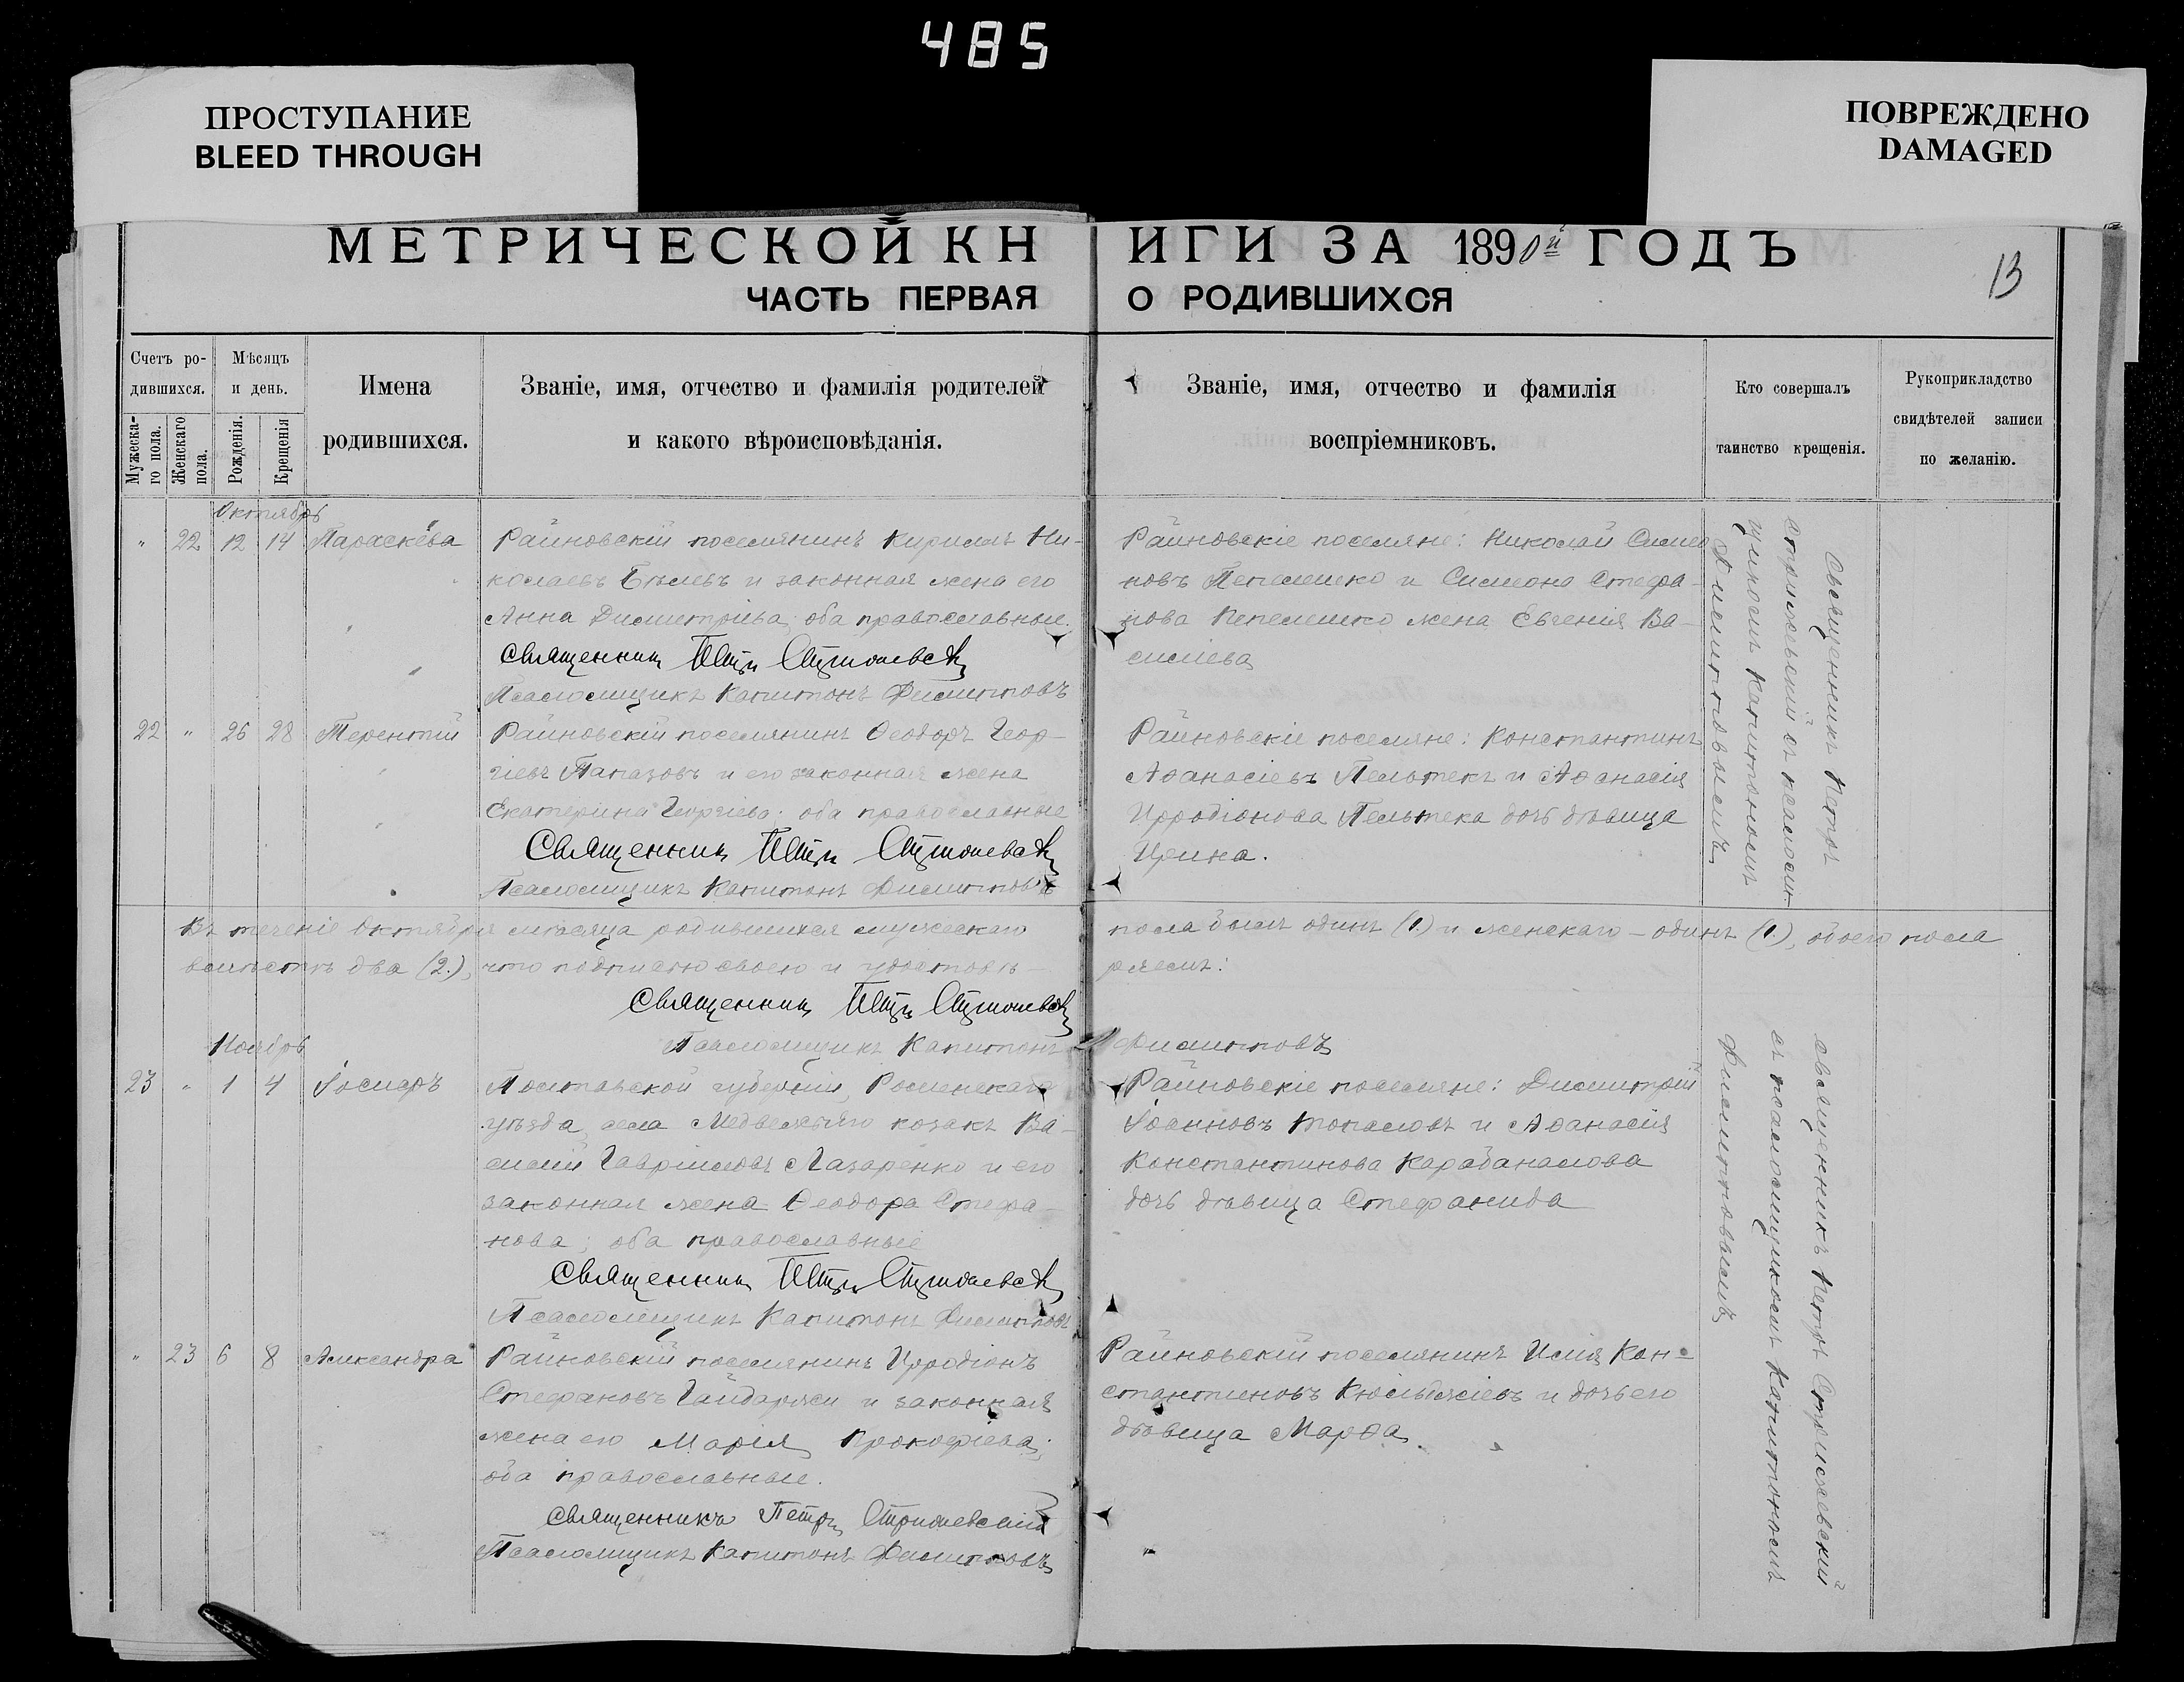 485
ПРОСТУПАНИЕ
BLEED THROUGH
ПОВРЕЖДЕНО
DAMAGED
МЕТРИЧЕСКОЙ КНИГИ ЗА 1890й ГОДЪ
13
ЧАСТЬ ПЕРВАЯ О РОДИВШИХСЯ
Счетъ ро-
дившихся.
Мужеска-
го пола.
Женскаго
пола.
Мѣсяцъ
и день.
Рожденія.
Крещенія
Имена
родившихся.
Званіе, имя, отчество и фамилія родителей
и какого вѣроисповѣданія.
Званіе, имя, отчество и фамилія
воспріемниковъ.
Кто совершалъ
таинство крещенія.
Рукоприкладство
свидѣтелей записи
по желанію.
Октябрь
" 22 12 14 Параскева
Раиновскій поселянинъ Кириллъ Ни-
колаевъ Бѣлевъ и законная жена его
Анна Димитріева, оба православные.
Священникъ Петръ
Псаломщикъ Капитонъ Филипповъ
Раиновскіе поселяне: Николай Симео
новъ Пепелешко и Симеона Стефа-
нова Пепелешко жена Евгенія Ва-
силиева
Священникъ Петръ
Стрижевскій съ псаломщ-
щикомъ Капитономъ
Филипповымъ
22 " 26 28 Терентій
Раиновскій поселянинъ Ѳеодоръ Геор-
гіевъ Папазовъ и его законная жена
Екатерина Георгіева; оба православные
Священникъ Петръ
Псаломщикъ Капитонъ Филипповъ
Раиновскіе поселяне: Константинъ
Аѳанасіевъ Пельтекъ и Аѳанасія
Иродіонова Пельтека дочь дѣвица
Ирина.
Въ теченіе Октября мѣсяца родившихся мужескаго пола былъ одинъ (1) и женскаго - одинъ (1), обоего пола
вмѣстѣ два (2.), что подписью своею и удостовѣ-ряемъ:
Священникъ Петръ
Псаломщикъ Капитонъ Филипповъ
Ноябрь
23 " 1 4
Полтавской губерніи, Роменскаго
уѣзда, села Медвежьяго козакъ Ва-
силій Гавриловъ Лазаренко и его
законная жена Ѳеодора Стефа-
нова; оба православные
Священникъ Петръ
Псаломщикъ Капитонъ Филипповъ
Раиновскіе поселяне: Димитрій
Іоанновъ Топаловъ и Аѳанасія
Константинова Карабаналова
дочь дѣвица Стефанида
Священникъ Петръ Стрижевскій
съ псаломщикомъ Капитономъ
Филипповымъ
" 23 6 8 Александра
Раиновскій поселянинъ Иродіонъ
Стефановъ Гайдаржи и законная
жена его Марія Прокофіева;
оба православные.
Священникъ Петръ Стрижевскій
Псаломщикъ Капитонъ Филипповъ
Раиновскій поселянинъ Илія Кон-
стантиновъ и дочь его
дѣвица Марѳа.